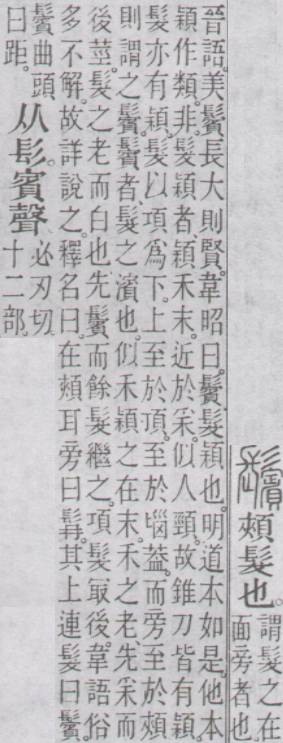 鬢 頰髮也。謂髮之在
面旁者也。
晉語。美鬢長大則賢。韋昭曰。鬢、髮穎也。明道本如是。他本
穎作類。非。髮穎者、穎禾末。近於采。似人頸。故錐刀皆有穎。
髮亦有穎。髮以項爲下。上至於頂。至於𡿺葢。而旁至於頰
則謂之鬢。鬢者、髮之濱也。似禾穎之在末。禾之老先采而
後莖。髮之老而白也先鬢而餘髮繼之。項髮冣後。韋語俗
多不解。故詳說之。釋名曰。在頰耳旁曰髥。其上連髮曰鬢。
鬢曲頭
曰距。
从髟。賓聲。
必刃切。
十二部。